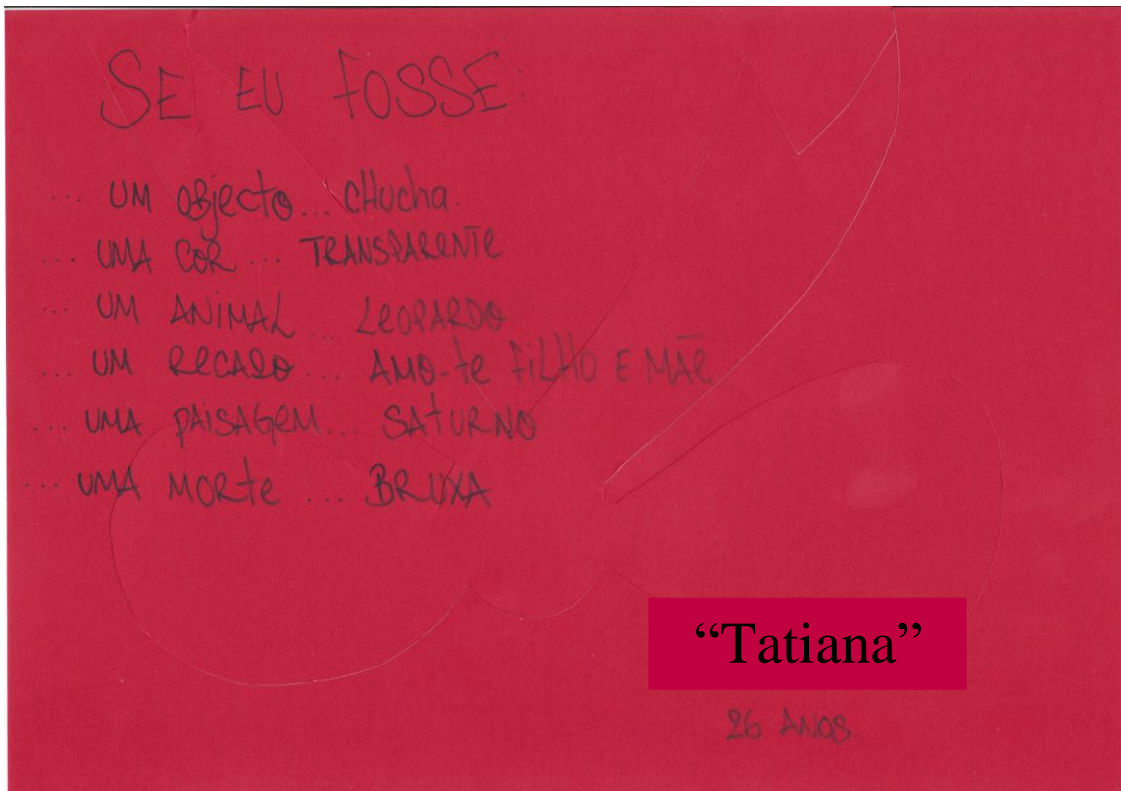 SE EU FOSSE:
... UM OBJECTO... CHUCHA.
... UMA COR ... TRANSPARENTE
... UM ANIMAL... LEOPARDO
... UM RECADO... AMO-TE FILHO E MÃE
... UMA PAISAGEM... SATURNO
... UMA MORTE ... BRUXA
“Tatiana”
26 ANOS